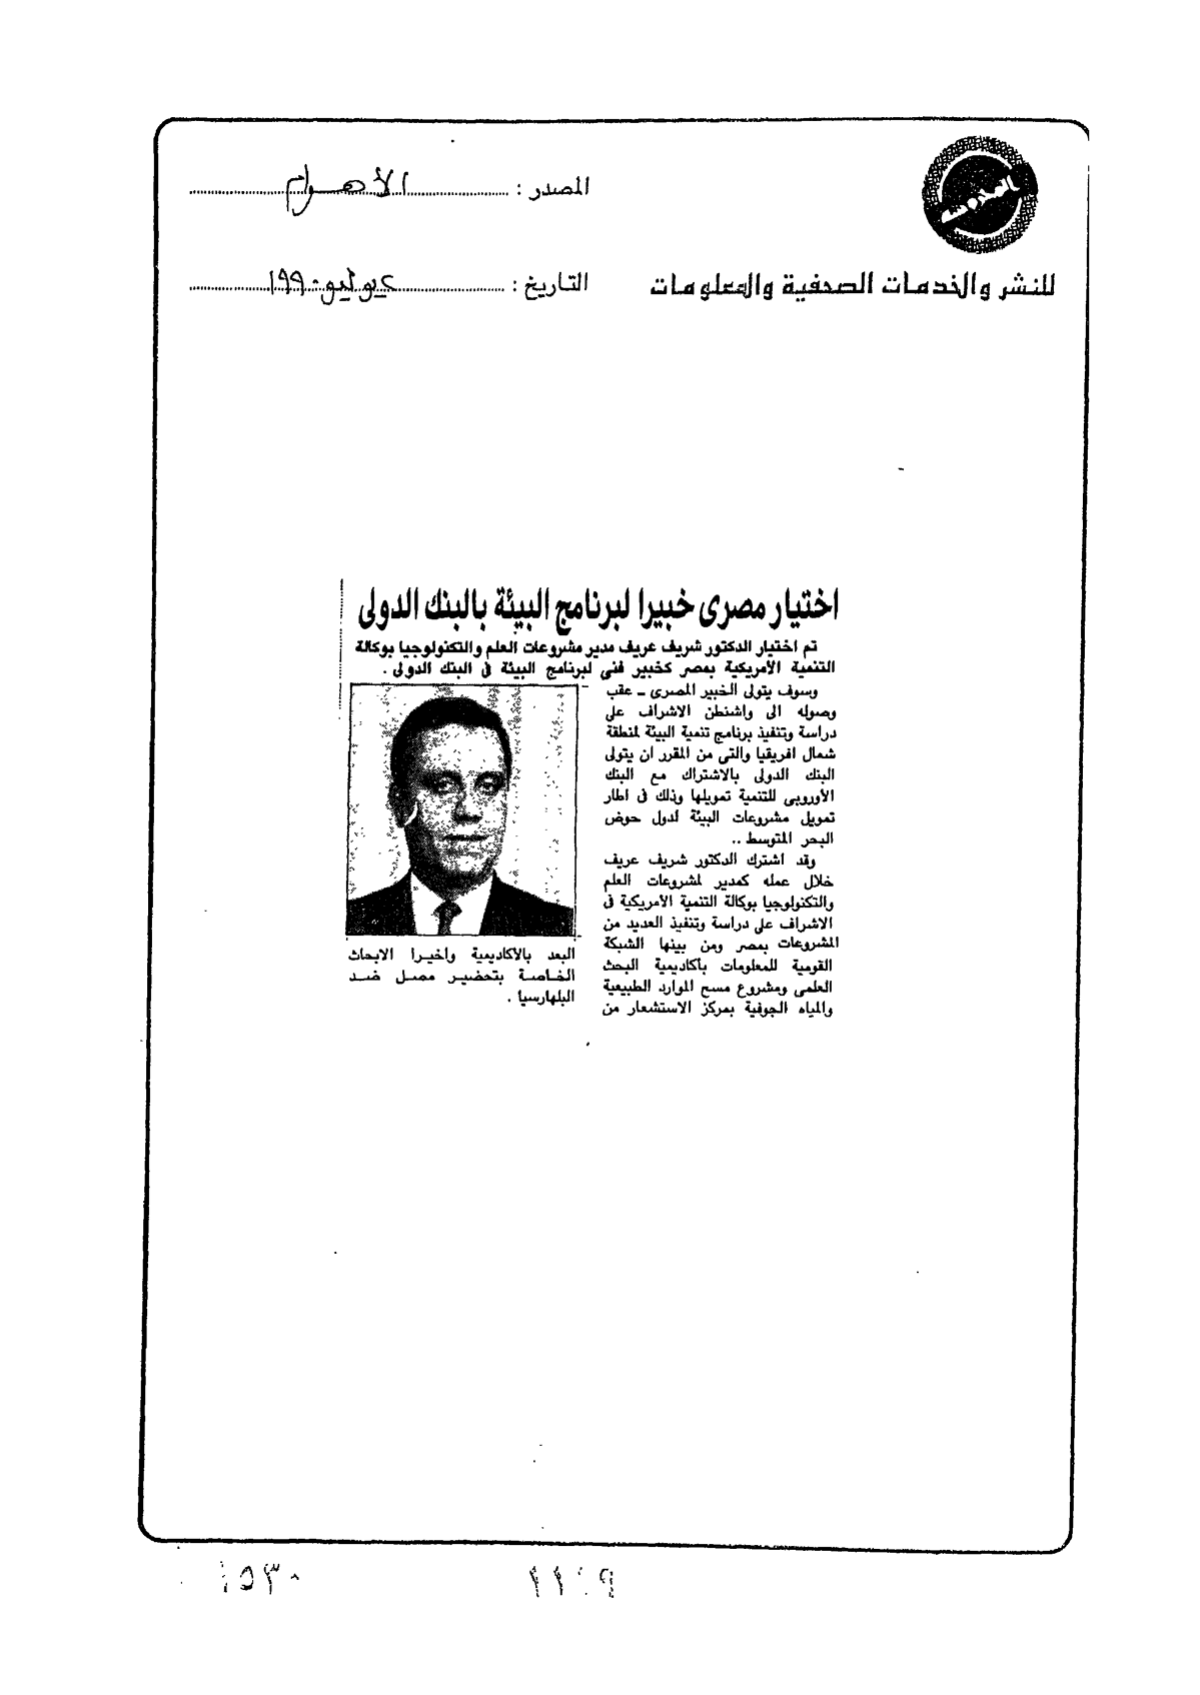 المصدر : الأهرام
التاريخ : ٤ يوليو ١٩٩٠
للنشر والخدمات الصحفية والمعلومات
اختيار مصرى خبيرا لبرنامج البيئة بالبنك الدولى
تم اختيار الدكتور شريف عريف مدير مشروعات العلم والتكنولوجيا بوكالة
التنمية الأمريكية بمصر كخبير فنى لبرنامج البيئة فى البنك الدولى .
وسوف يتولى الخبير المصرى ـ عقب
وصوله الى واشنطن الاشراف على
دراسة وتنفيذ برنامج تنمية البيئة لمنطقة
شمال افريقيا والتى من المقرر ان يتولى
البنك الدولى بالاشتراك مع البنك
الأوروبى للتنمية تمويلها وذلك فى اطار
تمويل مشروعات البيئة لدول حوض
البحر المتوسط ..
وقد اشترك الدكتور شريف عريف
خلال عمله كمدير لمشروعات العلم
والتكنولوجيا بوكالة التنمية الأمريكية فى
الاشراف على دراسة وتنفيذ العديد من
المشروعات بمصر ومن بينها الشبكة
القومية للمعلومات بأكاديمية البحث
العلمى ومشروع مسح الموارد الطبيعية
والمياه الجوفية بمركز الاستشعار من
البعد بالأكاديمية وأخيرا الابحاث
الخاصة بتحضير مصل ضد
البلهارسيا .
١٥٣٠